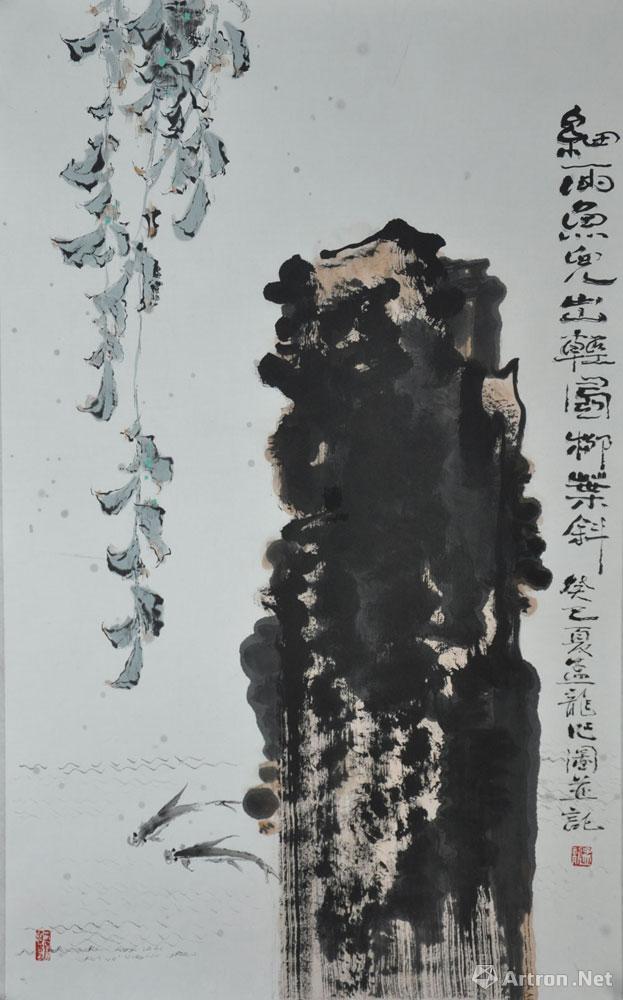 細雨魚兒出輕風柳葉斜 癸巳夏孟龍作圖並記
Artron.Net